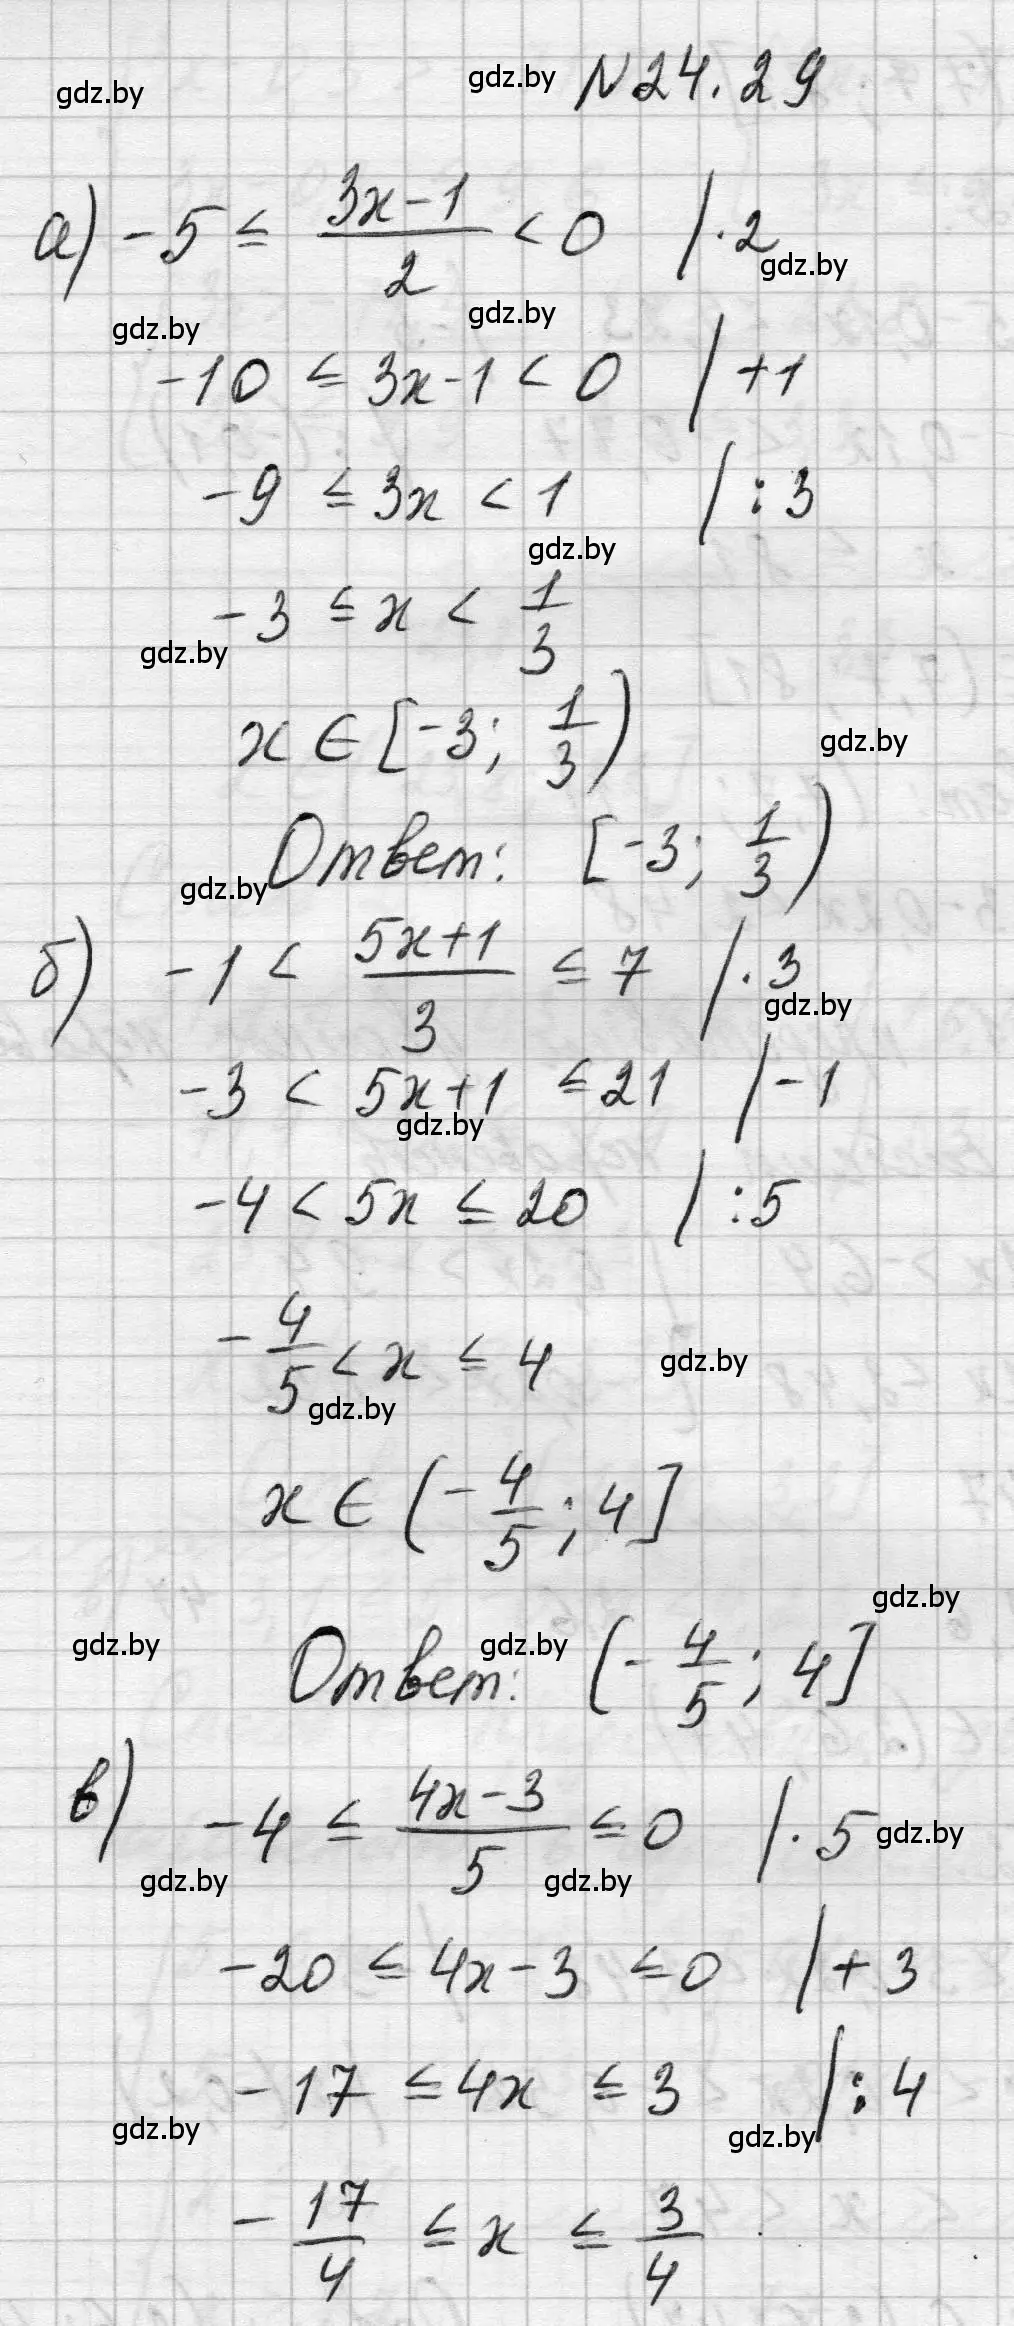 gdz.by gdz.by N 24.29
а) -5 ≤ (3x-1)/2 < 0 | ·2
gdz.by
gdz.by gdz.by
-10 ≤ 3x-1 < 0 | +1
-9 ≤ 3x < 1 | :3
gdz.by
-3 ≤ x < 1/3
gdz.by
x ∈ [-3; 1/3)
gdz.by
Ответ: [-3; 1/3)
gdz.by
б) -1 < (5x+1)/3 ≤ 7 | ·3
gdz.by
-3 < 5x+1 ≤ 21 | -1
gdz.by
-4 < 5x ≤ 20 | :5
-4/5 < x ≤ 4
gdz.by
gdz.by
x ∈ (-4/5; 4]
gdz.by
gdz.by gdz.by
Ответ: (-4/5; 4]
в) -4 ≤ (4x-3)/5 ≤ 0 | ·5
gdz.by
gdz.by gdz.by
-20 ≤ 4x-3 ≤ 0 | +3
-17 ≤ 4x ≤ 3 | :4
gdz.by gdz.by
-17/4 ≤ x ≤ 3/4